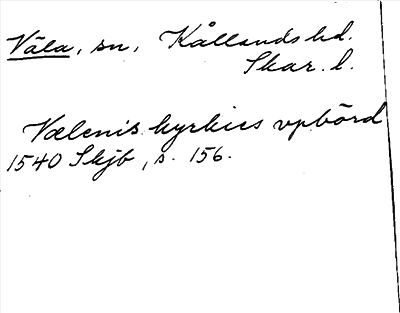 Väla, sn, Kållands hd.
Skar. l.
Vælenis kyrkies vpbörd
1540 Skjb, s. 156.